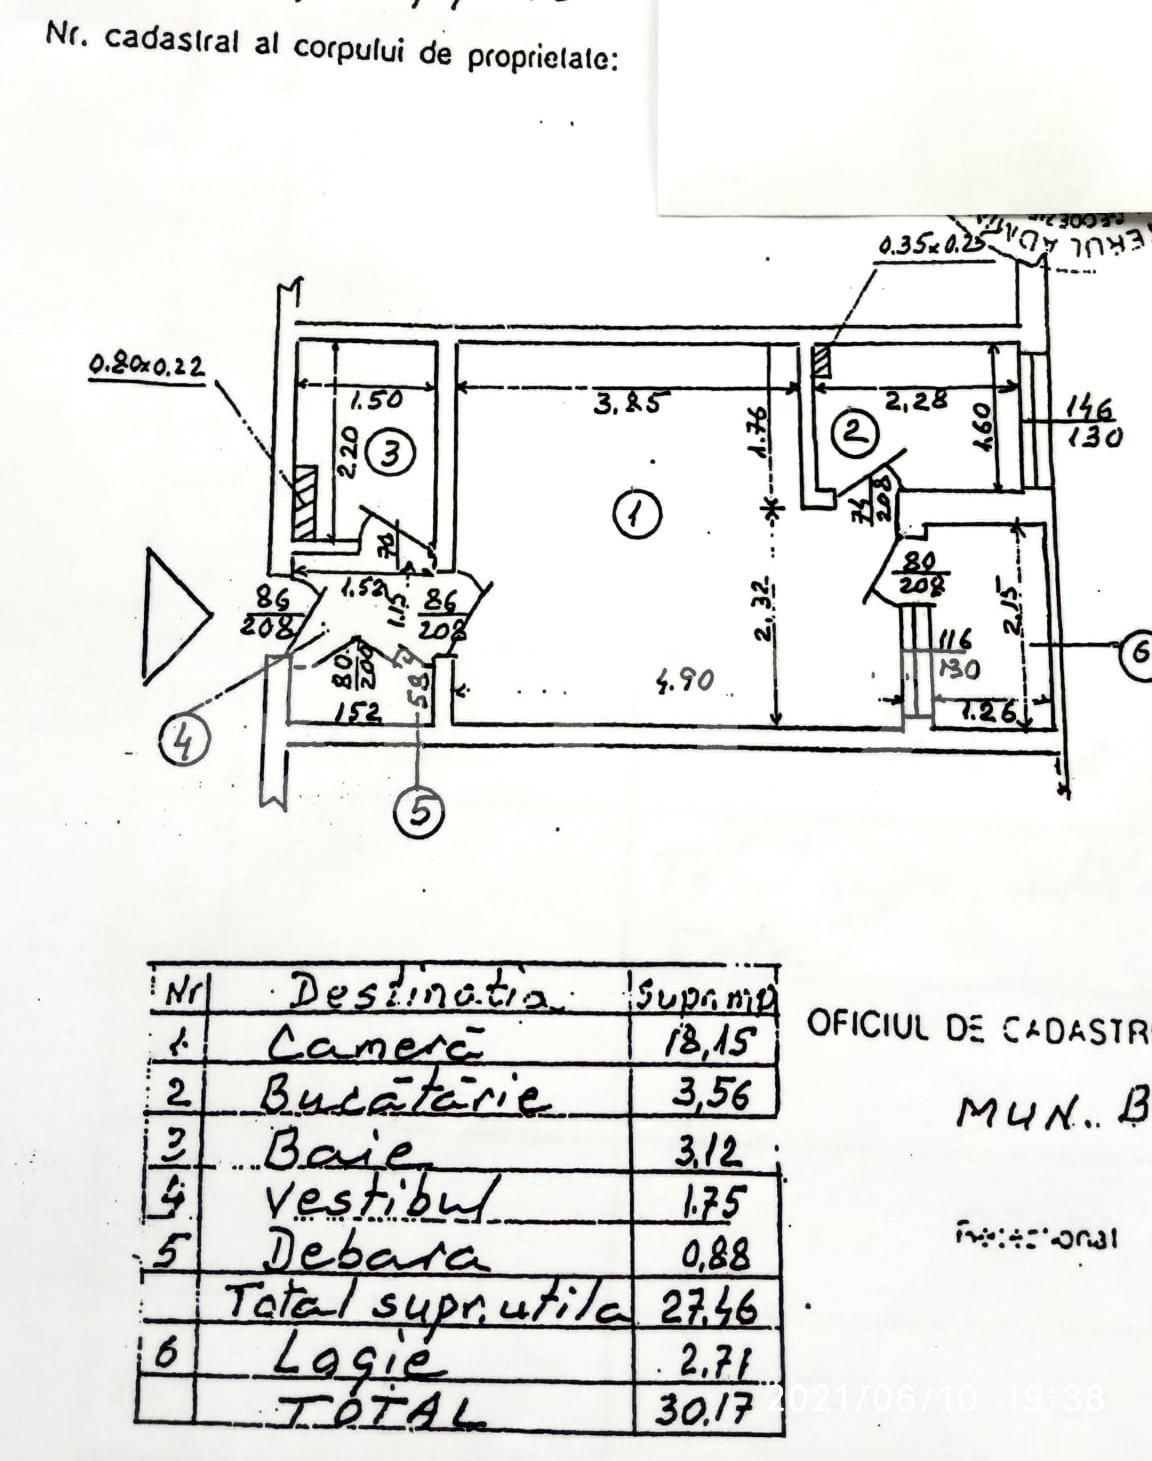 Nr. cadastral al corpului de proprietate:
0.35x0.25
0.80x0.22
1.50
3,85
2,28
146
130
2.20
3
1.76
2
1.60
1
74
208
70
80
208
1.52
1.15
86
208
86
208
2,32
2,15
116
130
6
80
200
58
4.90
1.26
152
4
5
Nr Destinatia Supr. mp
1. Cameră 18,15
2 Bucătărie 3,56
3 Baie 3,12
4 Vestibul 1.75
5 Debara 0,88
Total supr. utila 27.46
6 Logie 2,71
TOTAL 30.17
OFICIUL DE CADASTR
MUN. B
2021/06/10 19:38